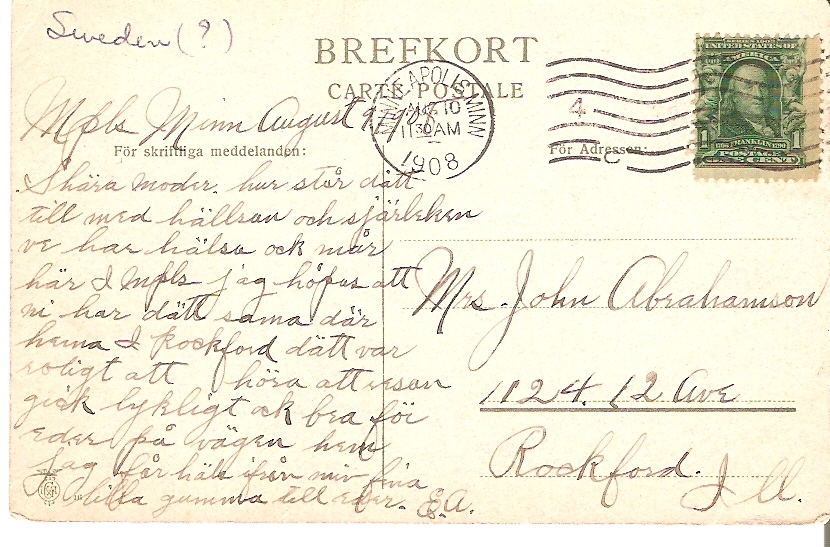 Sweden (?)
BREFKORT
CARTE POSTALE
MINNEAPOLIS, MINN
AUG 10
11 30 AM
1908
4
SERIES 1902
UNITED STATES OF
AMERICA
1706 FRANKLIN 1790
POSTAGE
1 ONE CENT 1
Mpls Minn August 9, 1908
För skriftliga meddelanden:
För Adressen:
Shära moder. hur står dätt
till med hällsan och själfleken
ve har hälsa ock mår
här I Mpls jag höpas att
ni har dätt sama där
hema I Rockford dätt var
roligt att höra att resan
gick lykligt ock bra för
eder på vägen hem
jag får häls ifrån min fina
lilla gumma till eder. E.A.
Mrs. John Abrahamson
1124. 12 Ave
Rockford.
Ill.